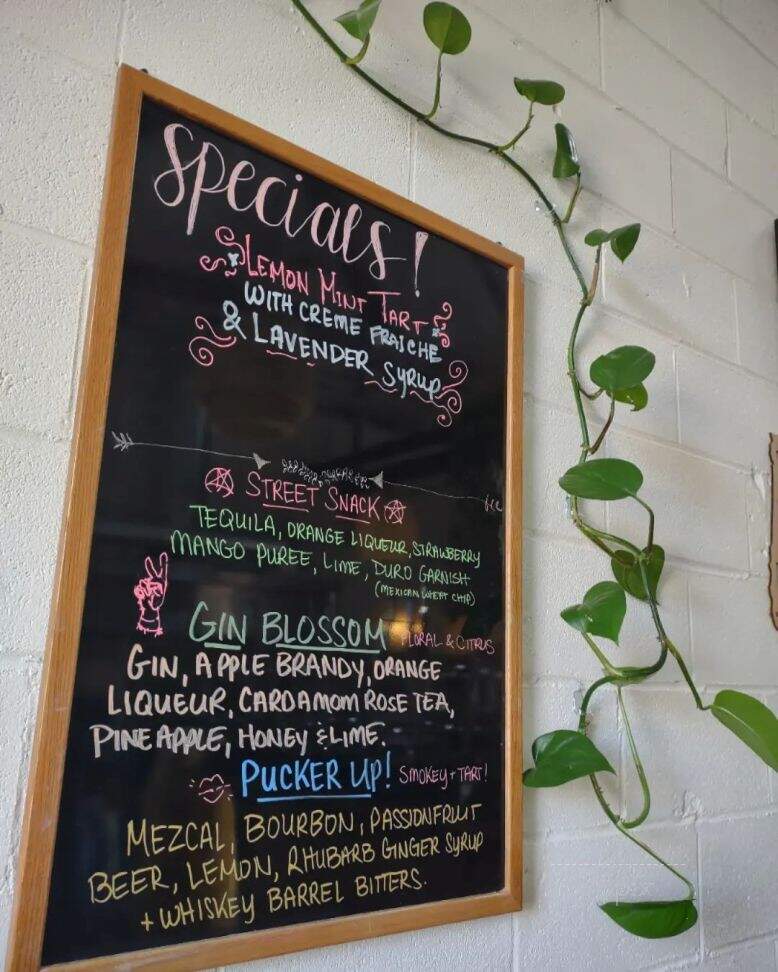 Specials!
LEMON MINT TART
WITH CREME FRAICHE
& LAVENDER SYRUP
STREET SNACK
TEQUILA, ORANGE LIQUEUR, STRAWBERRY
MANGO PUREE, LIME, DURO GARNISH
(MEXICAN WHEAT CHIP)
GIN BLOSSOM FLORAL & CITRUS
GIN, APPLE BRANDY, ORANGE
LIQUEUR, CARDAMOM ROSE TEA,
PINEAPPLE, HONEY & LIME.
PUCKER UP! SMOKEY + TART!
MEZCAL, BOURBON, PASSIONFRUIT
BEER, LEMON, RHUBARB GINGER SYRUP
+ WHISKEY BARREL BITTERS.